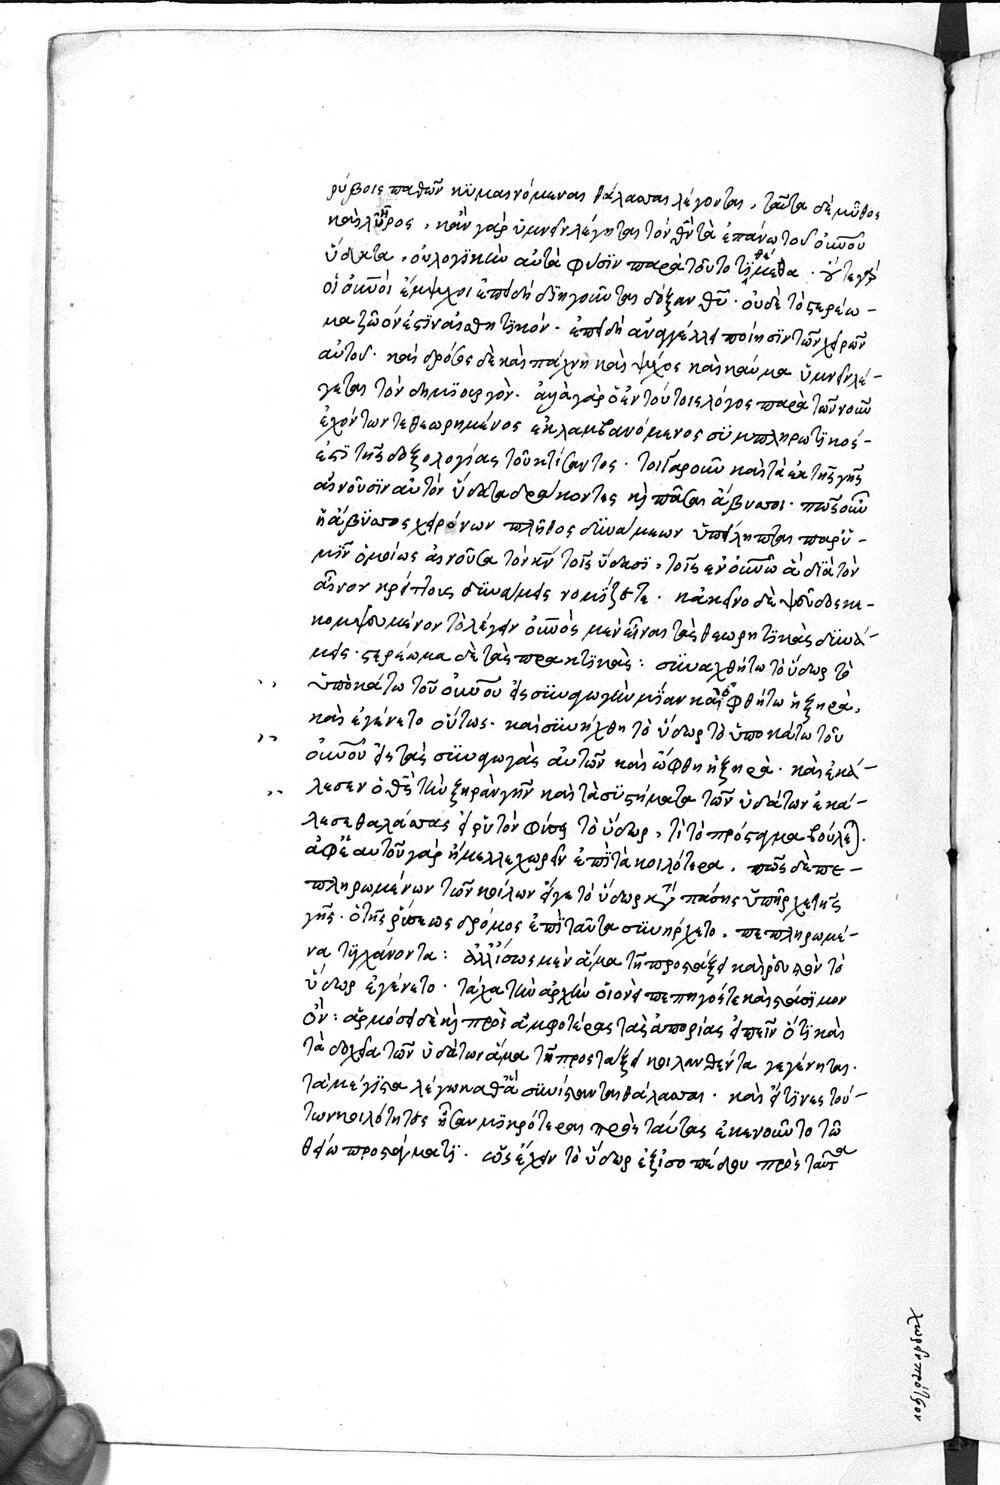 ρύβοις παθῶν κϋμαινόμεναι θάλασσαι λέγονται, ταῦτα δὲ μῦθος
καὶ λῆρος, κἂν γὰρ ὑμνεῖν λέγηται τὸν θν τὰ ἐπάνω τοῦ οὐνοῦ
ὕδατα, οὐ λογϊκὴν αὐτὰ φύσϊν παρὰ τοῦτο τϊθέμεθα · οὔτε γὰρ
οἱ οὐνοὶ ἔμψυχοι ἐπειδὴ διηγοῦνται δόξαν θυ · οὐδὲ τὸ στερέω-
μα ζῶον ἐστϊν αἰσθητϊκὸν · ἐπειδὴ ἀναγγέλλει ποίησϊν τῶν χειρῶν
αὐτοῦ · καὶ δρόσος δὲ καὶ πάχνη καὶ ψύχος καὶ καῦμα ὑμνεῖν λέ-
γεται τὸν δημϊουργὸν · ἀλλὰ γὰρ ὁ ἐν τούτοις λόγος παρὰ τῶν νοῦν
ἐχόντων τεθεωρημένος ἐκλαμβανόμενος συμπληρωτϊκός -
ἐστϊ τῆς δοξολογίας τοῦ κτίσαντος · τοιγαροῦν καὶ τὰ ἐκ τῆς γῆς
αἰνοῦσϊν αὐτὸν ὕδατα δράκοντες κ πᾶσαι ἄβυσσοι · πῶς οὖν
ἡ ἄβϋσσος χειρόνων πλῆθος δϋνάμεων ὑπείληπται παρ' ὑ-
μῖν ὁμοίως αἰνοῦσα τὸν κν τοῖς ὕδασϊ, τοῖς ἐν οὐνῶ ἃ διὰ τὸν
αἶνον κρείττους δϋνάμεις νομίζετε · κἀκεῖνο δὲ ψευδὲς κε-
κομψευμένον τὸ λέγειν οὐνὸς μὲν εἶναι τὰς θεωρητϊκὰς δϋνά-
μεις · στερέωμα δὲ τὰς πρακτϊκὰς : συναχθήτω τὸ ὕδωρ τὸ
ὑποκάτω τοῦ οὐνοῦ εἰς συναγωγὴν μίαν καὶ ὀφθήτω ἡ ξηρὰ,
καὶ ἐγένετο οὕτως · καὶ συνήχθη τὸ ὕδωρ τὸ ὑποκάτω τοῦ
οὐνοῦ εἰς τὰς συναγωγὰς αὐτῶν καὶ ὤφθη ἡ ξηρὰ · καὶ ἐκά-
λεσεν ὁ θς τὴν ξηρὰν γῆν καὶ τὰ συστήματα τῶν ὑδάτων ἐκά-
λεσε θαλάσσας εἰ ῥυτὸν φύσει τὸ ὕδωρ, τί τὸ πρόσταγμα βούλεται.
ἀφ' ἑαυτοῦ γὰρ ἤμελλε χωρεῖν ἐπὶ τὰ κοιλότερα, πῶς δὲ πε-
πληρωμένων τῶν κοίλων εἴγε τὸ ὕδωρ κατὰ πάσης ὑπῆρχε τῆς
γῆς · ὁ τῆς ῥύσεως δρόμος ἐπὶ ταῦτα συνήρχετο, πεπληρωμέ-
να τϋγχάνοντα : ἀλλ' ἴσως μὲν ἅμα τῇ προστάξει καὶ ῥευστὸν τὸ
ὕδωρ ἐγένετο · τάχα τὴν ἀρχὴν οἱονεὶ πεπηγός τε καὶ στάσϊμον
ὄν : ἁρμόσει δὲ κ πρὸς ἀμφοτέρας τὰς ἀπορίας εἰπεῖν ὅτϊ καὶ
τὰ δοχεῖα τῶν ὑδάτων ἅμα τῇ προστάξει κοιλανθέντα γεγένηται.
τὰ μέγϊστα λέγω καθ' ἃ συνίστανται θάλασσαι · καὶ εἴ τϊνες τού-
των κοιλότητες ἦσαν μϊκρότεραι πρὸς ταύτας ἐκενοῦντο τῶ
θείω προστάγματϊ · ὡς ἔχειν τὸ ὕδωρ ἐξϊσοπέδου πρὸς ταῦτα
χωρεῖν πρότερον